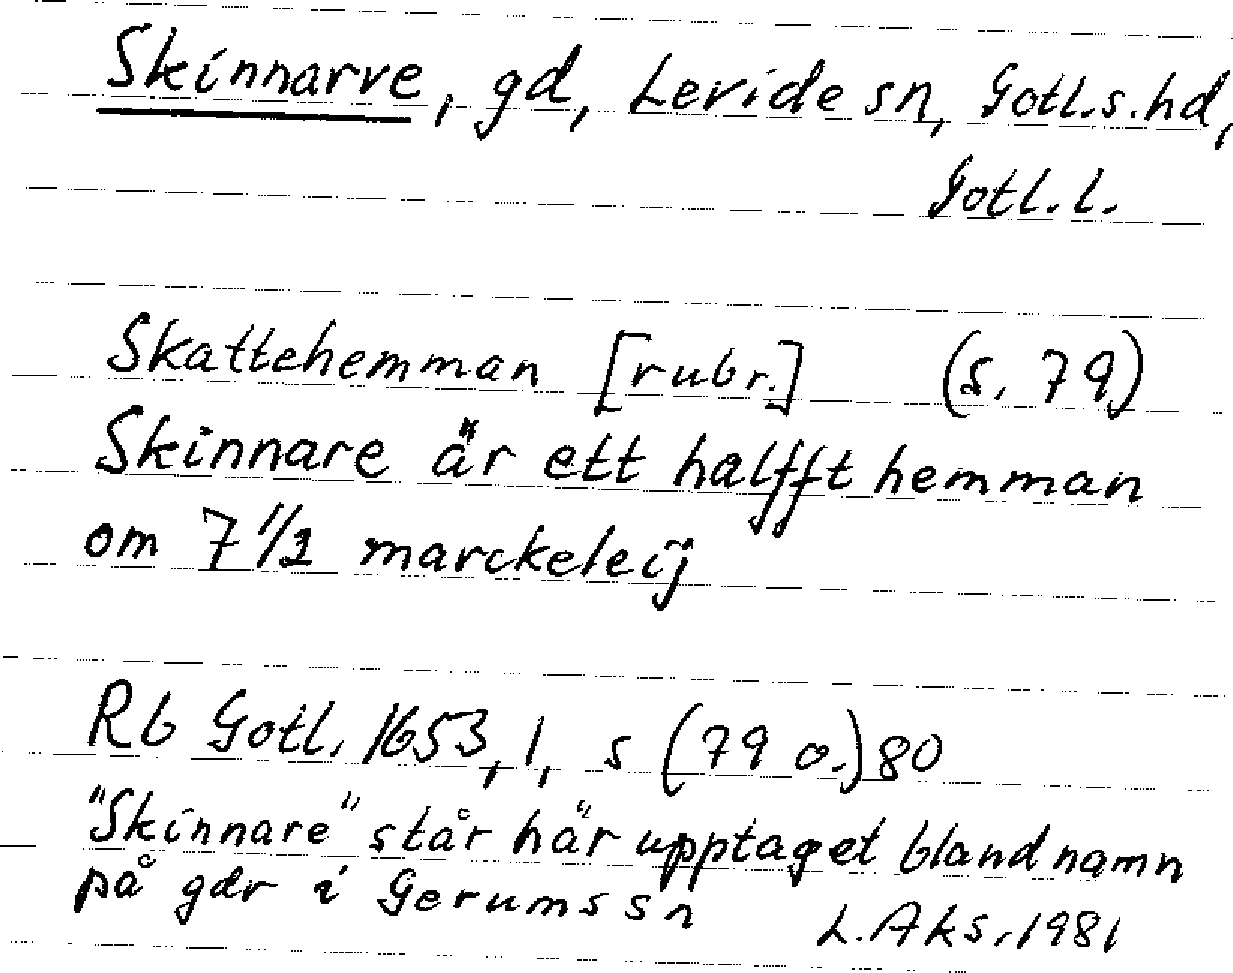 Skinnarve, gd, Levide sn, Gotl.s.hd,
Gotl.l.
Skattehemman [rubr.] (s. 79)
Skinnare är ett halfft hemman
om 7 1/2 marckeleij
Rb Gotl. 1653, 1, s (79 o.) 80
"Skinnare" står här upptaget bland namn
på gdr i Gerums sn
L. Aks. 1981